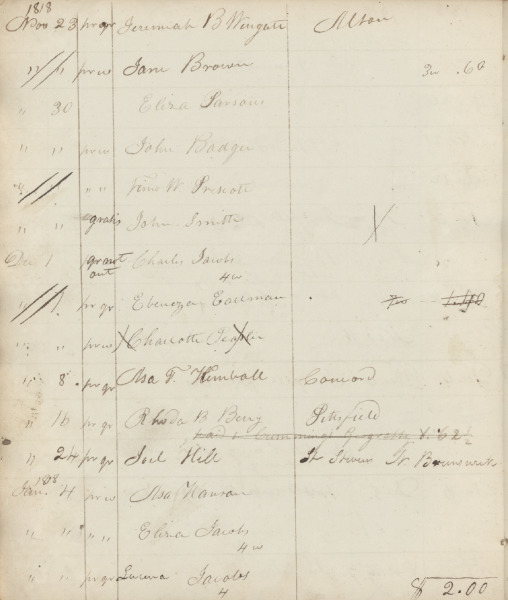 1818
Nov 23 pr qr Jeremiah B Wingate Alton
" " pr w Jane Brown 3w .60
" 30 Eliza Parsons
" " pr w John Badger
" " " " W Prescott
" " gratis John Smith X
Dec 1 out Charles Jacobs
4w
" " pr qr Ebenezer Eastman 7w 1.40
" " pr w Charlotte
" 8 pr qr Asa F. Kimball Concord
" 16 pr qr Rhoda B Berry Pittsfield
paid 1.62½
" 24 pr qr Joel Hill St Brunswick
Jan. 4 pr w Asa Hanson
" " " " Eliza Jacobs
4w
" " pr qr Lucena Jacobs
4
$ 2.00